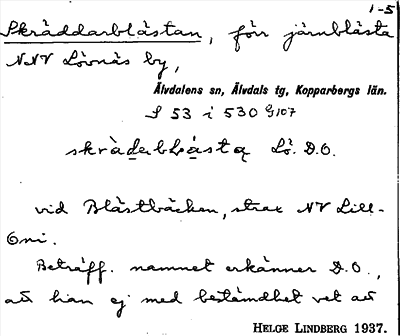 1-5
Skräddarblästan, förr järnblästa
NNV Lövnäs by,
Älvdalens sn, Älvdals tg, Kopparbergs län.
S 53 i 530 G107
skràdarblästa Lö. D.O.
vid Blästbäcken, strax NV Lill-
Öni.
Beträff. namnet erkänner D.O.,
att han ej med bestämdhet vet att
HELGE LINDBERG 1937.